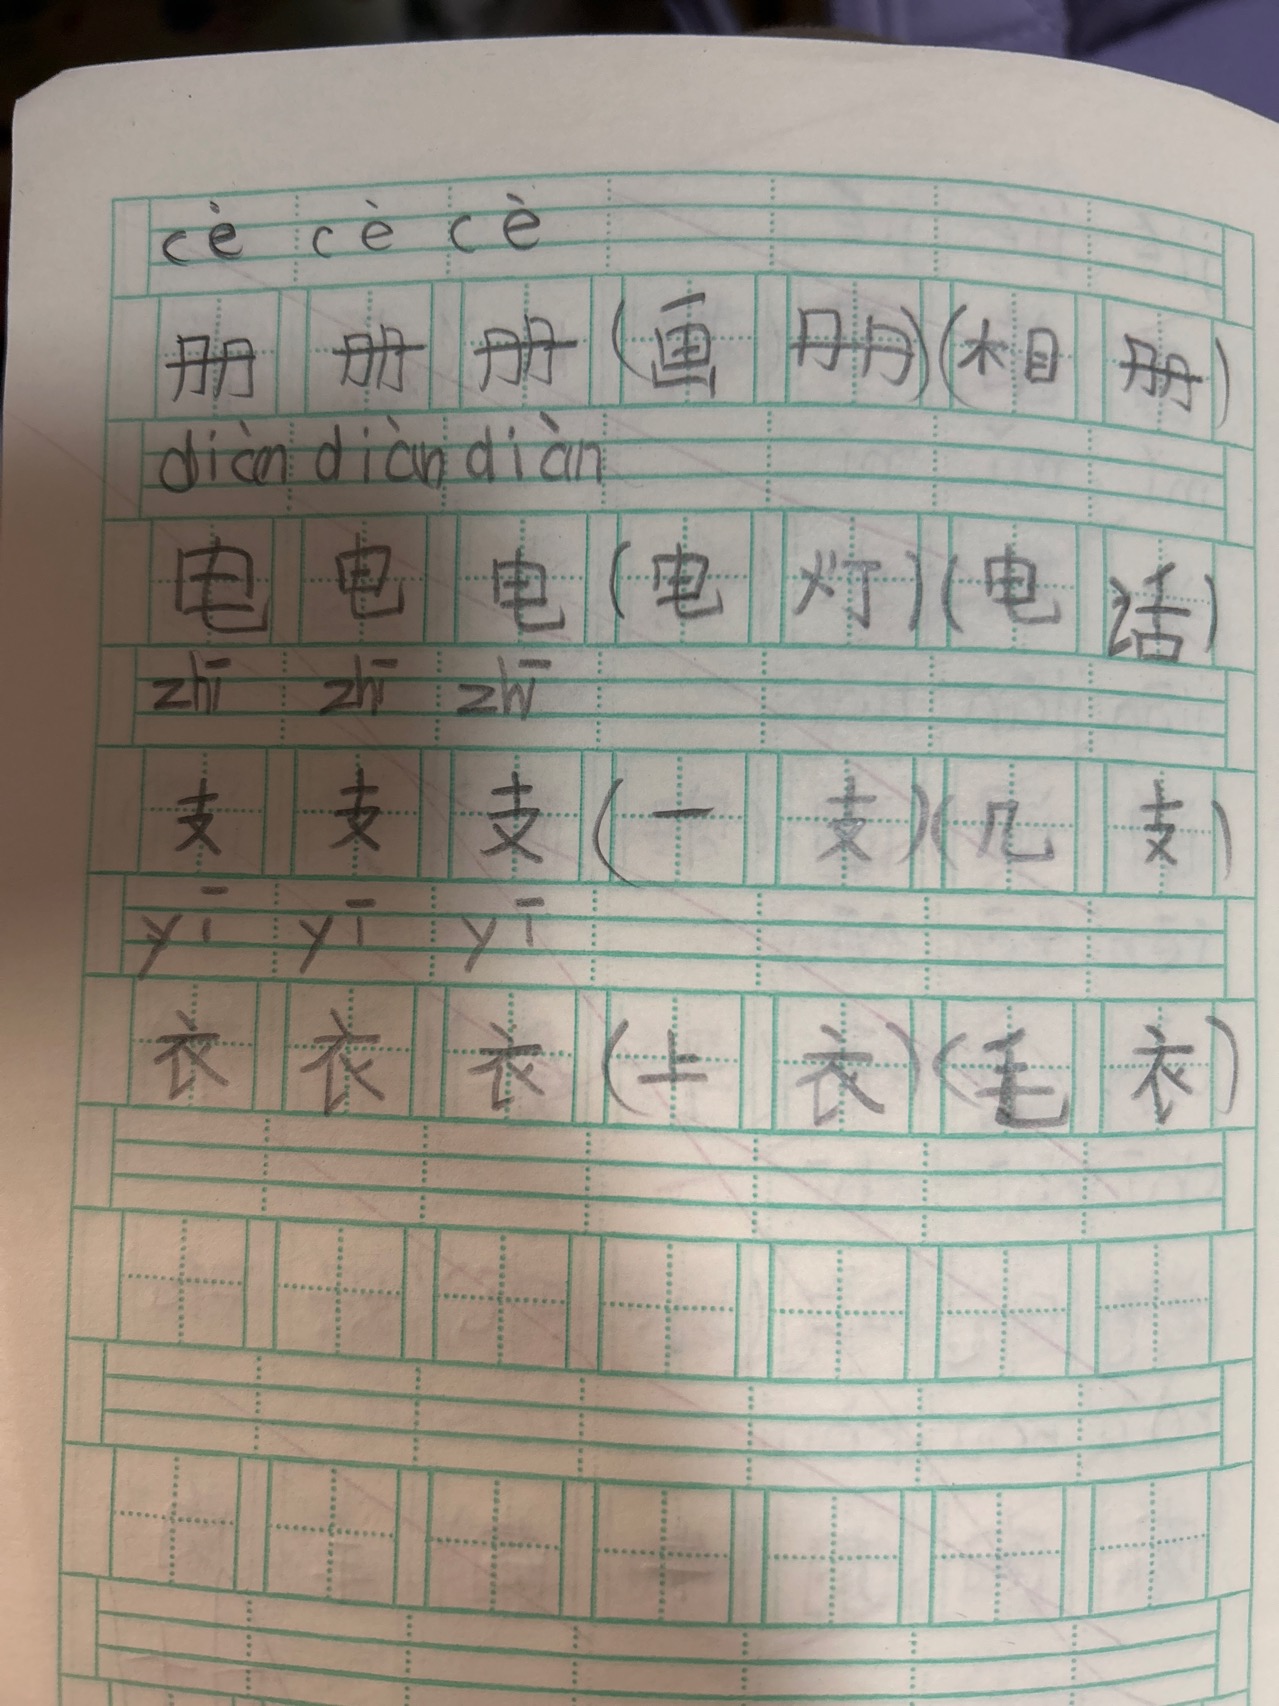 cè cè cè
册 册 册 (画 册) (相 册)
diàn diàn diàn
电 电 电 (电 灯) (电 话)
zhī zhī zhī
支 支 支 (一 支) (几 支)
yī yī yī
衣 衣 衣 (上 衣) (毛 衣)